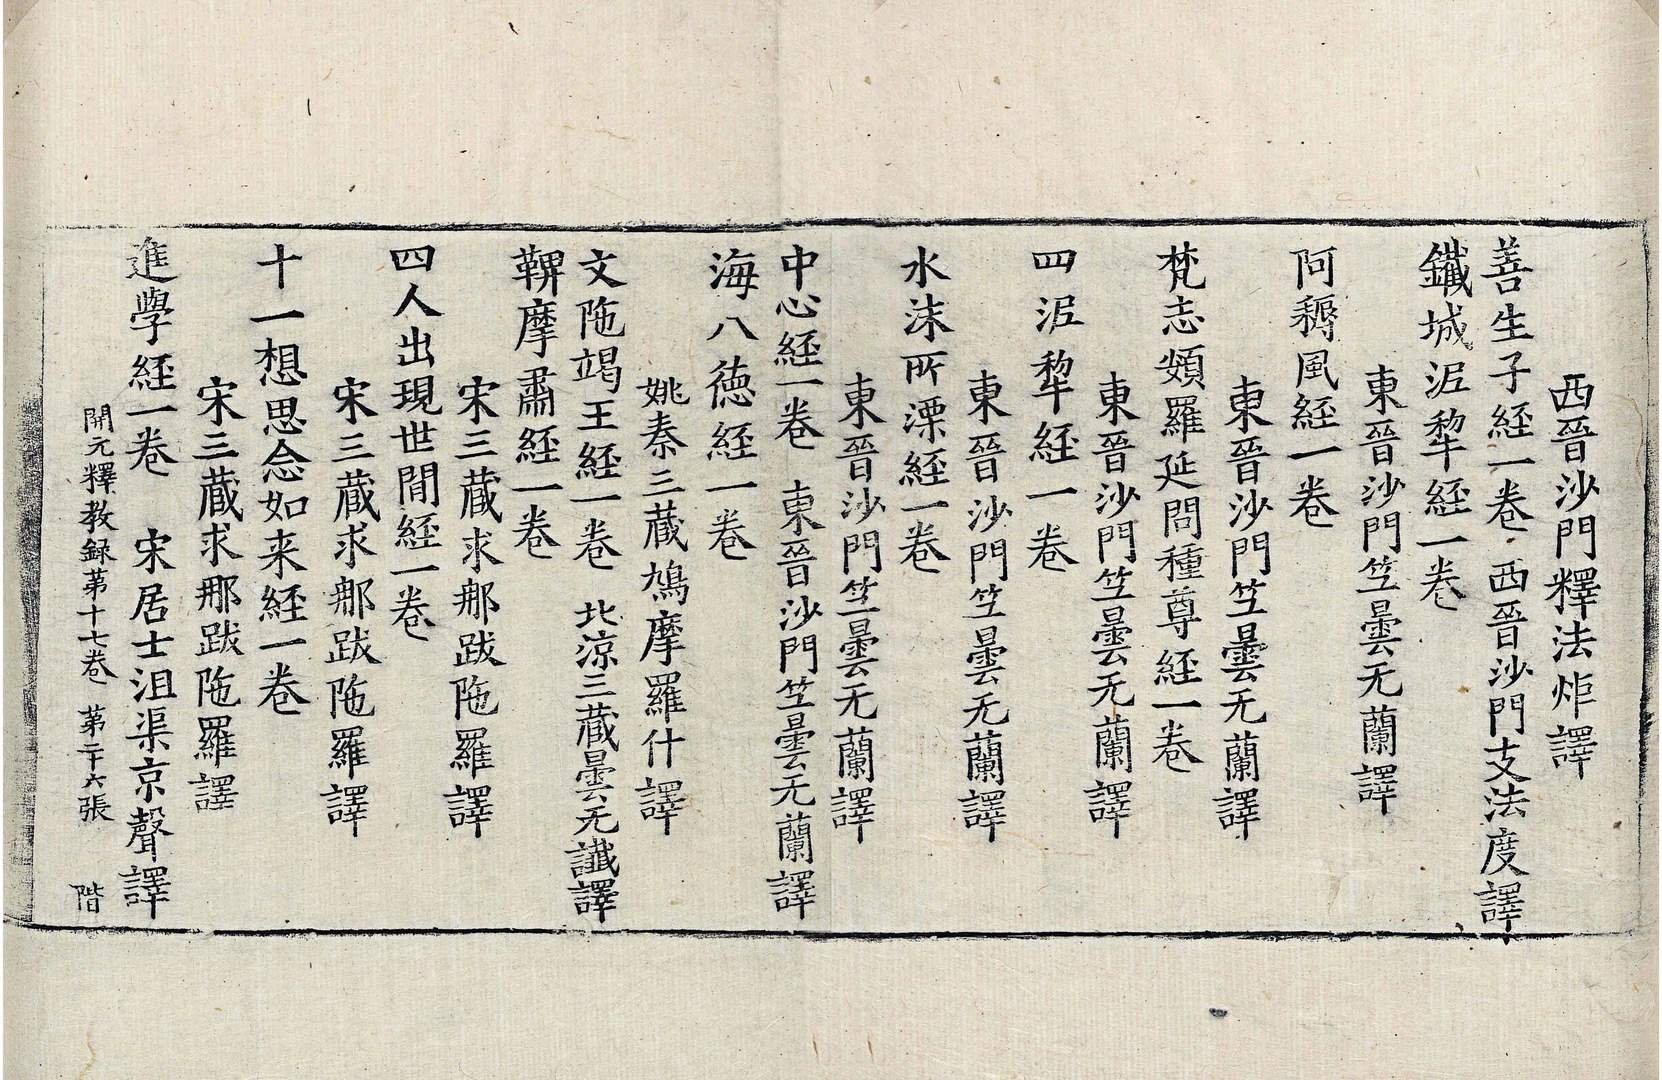 西晉沙門釋法炬譯
善生子經一卷 西晉沙門支法度譯
鐵城泥犂經一卷
東晉沙門竺曇无蘭譯
阿耨風經一卷
東晉沙門竺曇无蘭譯
梵志頞羅延問種尊經一卷
東晉沙門竺曇无蘭譯
四泥犂經一卷
東晉沙門竺曇无蘭譯
水沫所漂經一卷
東晉沙門竺曇无蘭譯
中心経一卷 東晉沙門竺曇无蘭譯
海八徳経一卷
姚秦三藏鳩摩羅什譯
文陁竭王経一卷 北涼三藏曇无讖譯
鞞摩肅経一卷
宋三藏求那跋陁羅譯
四人出現世間経一卷
宋三藏求那跋陁羅譯
十一想思念如来経一卷
宋三藏求那跋陁羅譯
進學経一卷 宋居士沮渠京聲譯
開元釋教録第十七卷 第二十六張 階